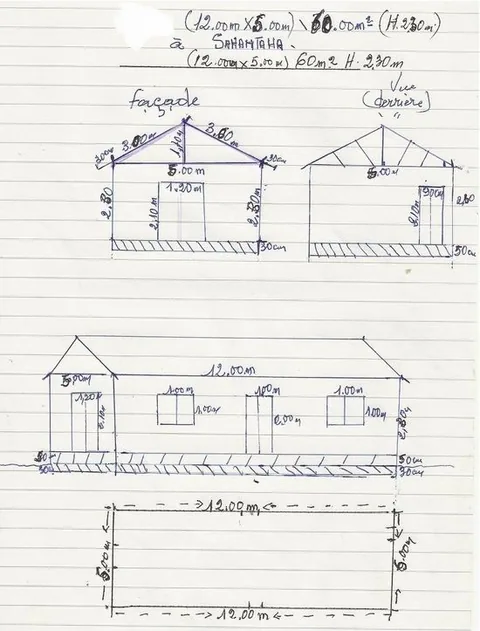 (12.00m x 5.00m) \ 60.00m² (H.2.30m)
à SAHANTAHA.
(12.00m x 5.00m) 60m² H. 2.30m
façade
Vue
(derrière)
3.00m
3.00m
1,20m
30cm
5.00m
5.00m
1.20m
2.10m
2.30
2.30m
30cm
90cm
2.10m
2,30
50cm
12.00m
5.00m
1,20m
2,10m
1.00m
1.00m
1.00m
1.00m
1.00m
2,30m
50cm
50cm
30cm
12.00m
5.00m
5.00m
12.00m